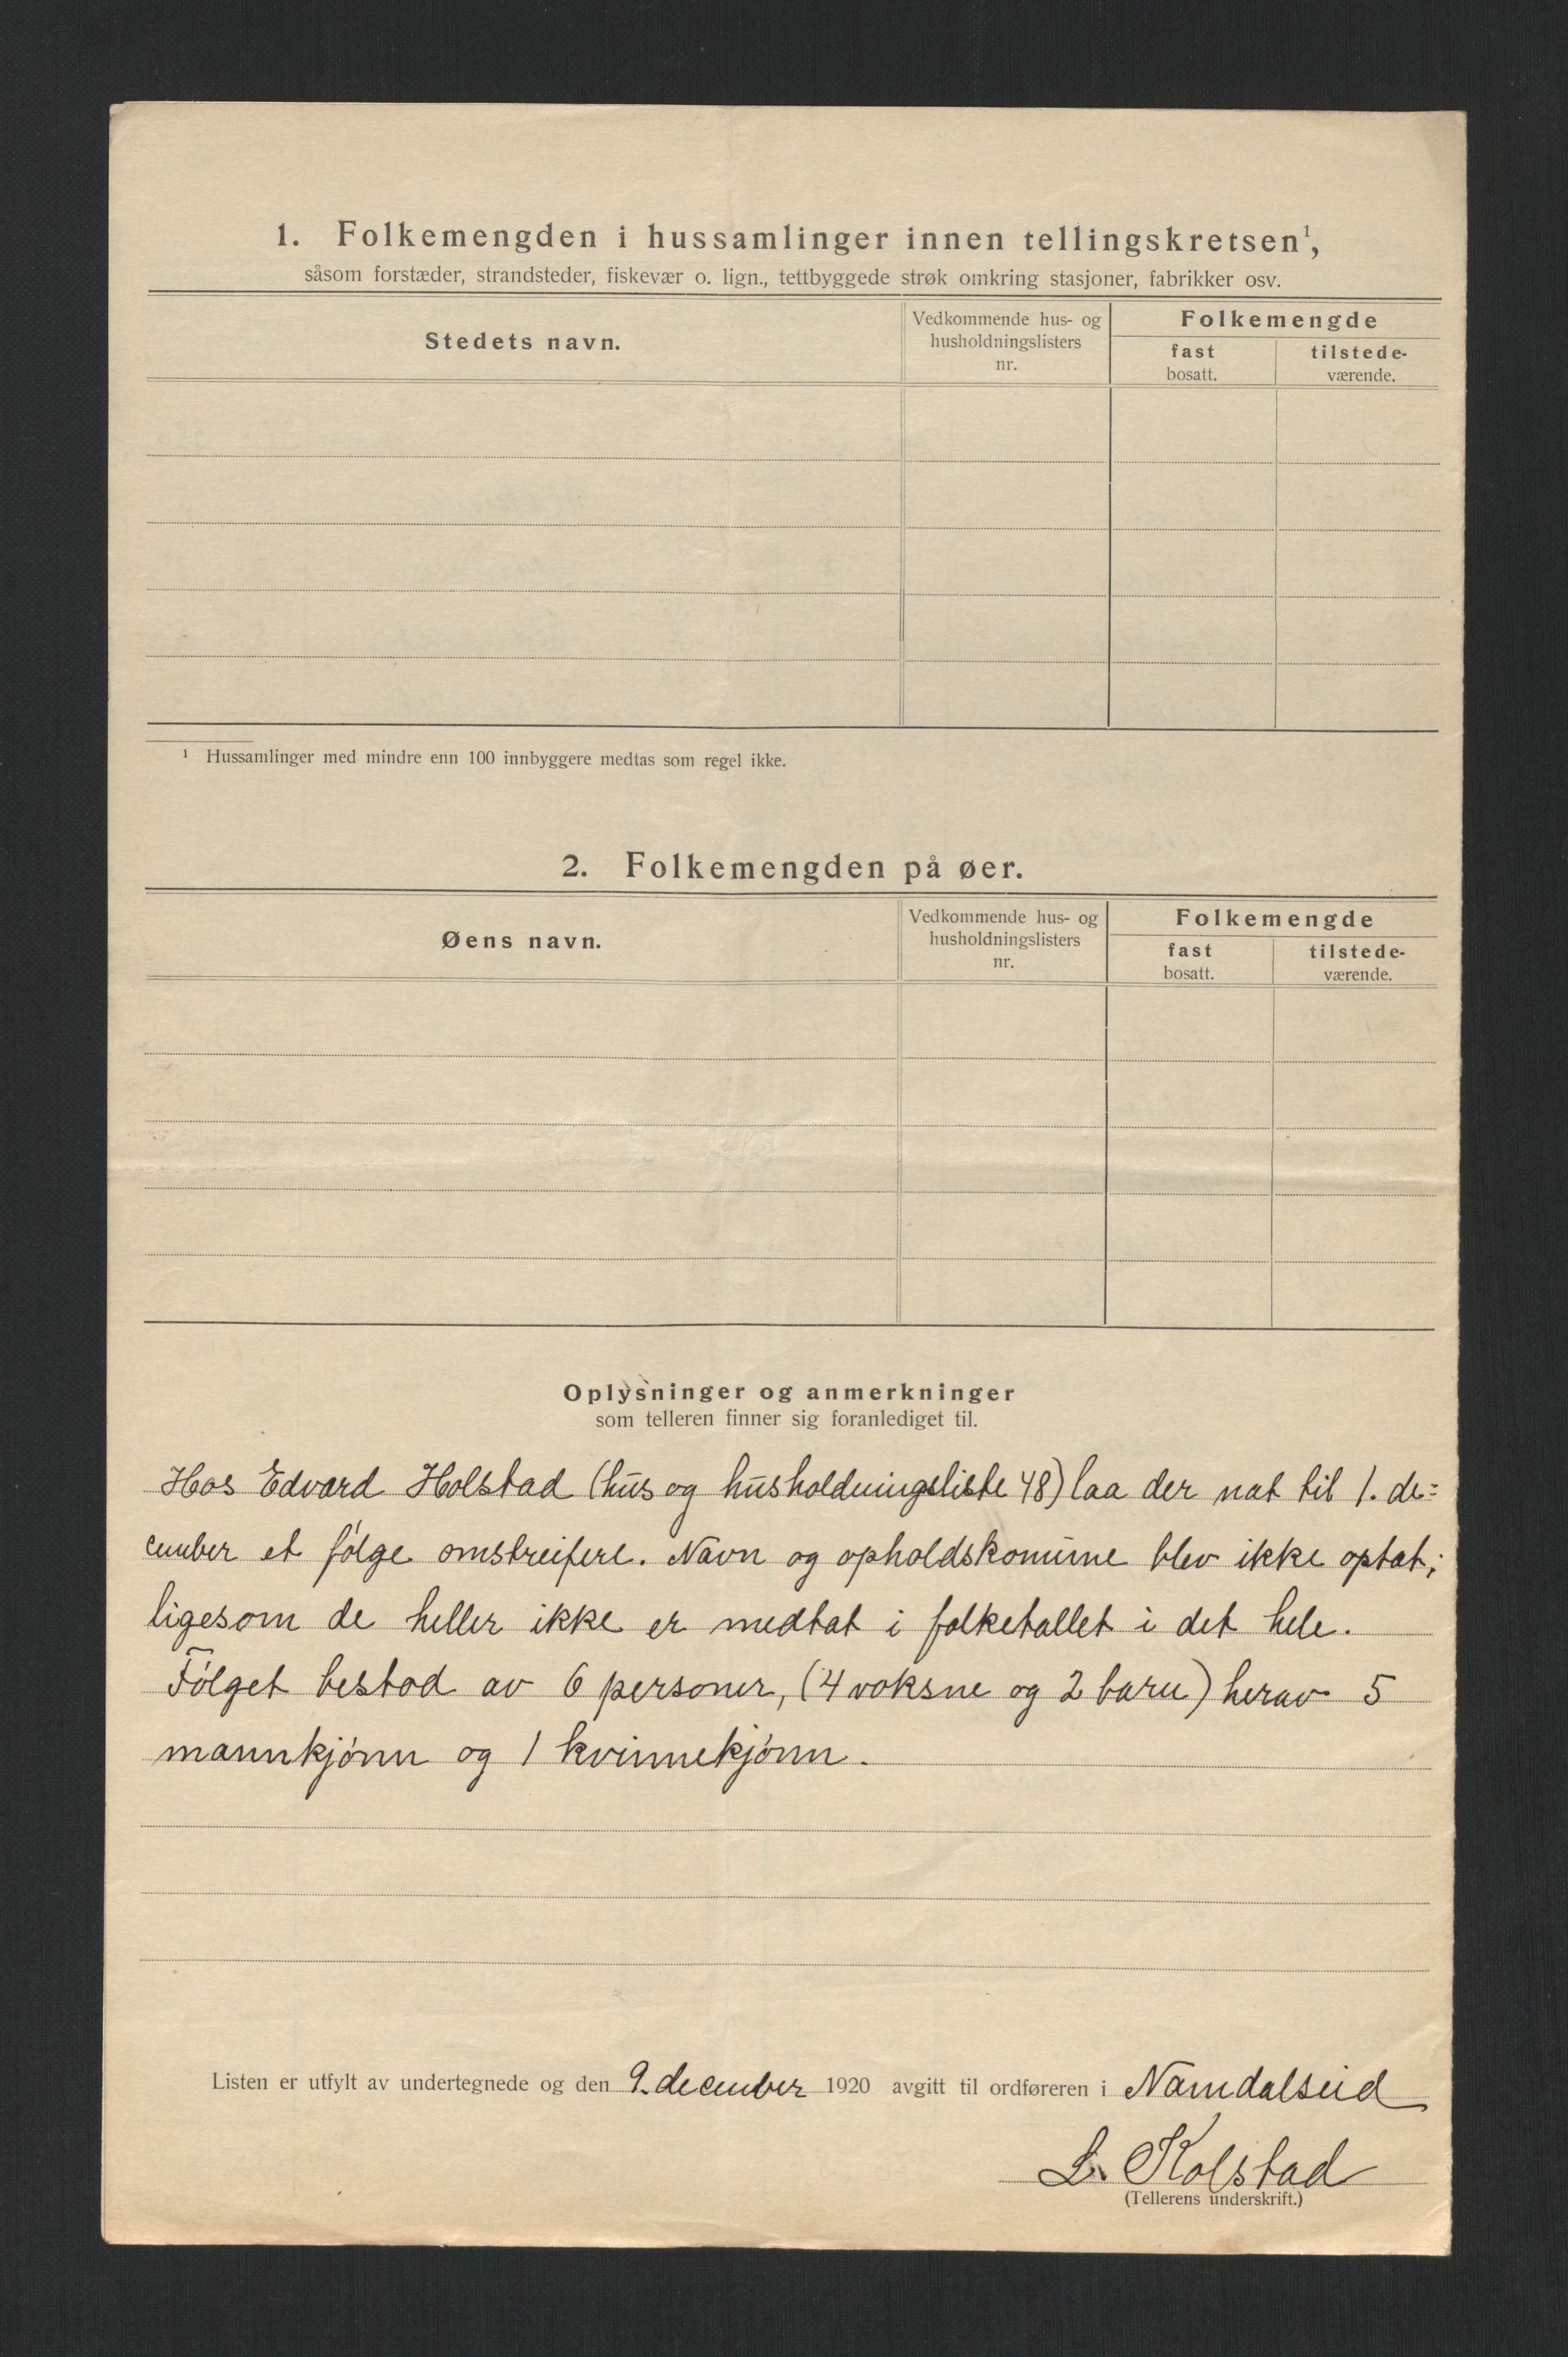 1. Folkemengden i hussamlinger innen tellingskretsen¹,
såsom forstæder, strandsteder, fiskevær o. lign., tettbyggede strøk omkring stasjoner, fabrikker osv.
Stedets navn.
Vedkommende hus- og
husholdningslisters
nr.
Folkemengde
fast
bosatt.
tilstede-
værende.
¹ Hussamlinger med mindre enn 100 innbyggere medtas som regel ikke.
2. Folkemengden på øer.
Øens navn.
Vedkommende hus- og
husholdningslisters
nr.
Folkemengde
fast
bosatt.
tilstede-
værende.
Oplysninger og anmerkninger
som telleren finner sig foranlediget til.
Hos Edvard Holstad (hus og husholdningsliste 48) laa der nat til 1. de=
cember et følge omstreifere. Navn og opholdskomune blev ikke optat;
ligesom de heller ikke er medtat i folketallet i det hele.
Følget bestod av 6 personer, (4 voksne og 2 barn) herav 5
mannkjønn og 1 kvinnekjønn.
Listen er utfylt av undertegnede og den 9. december 1920 avgitt til ordføreren i Namdalseid
L. Kolstad
(Tellerens underskrift.)